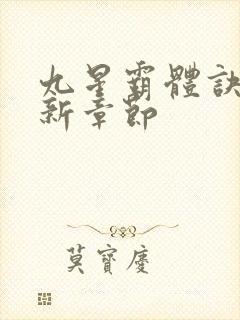 九星霸體訣
新章節
莫寶慶